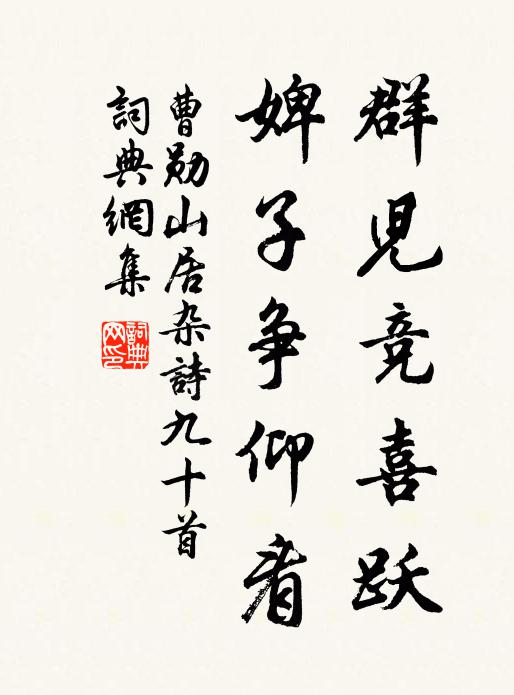 群児竞喜跃
婢子争仰看
曹勋山居杂詩九十首
詞典網集
詞典
网印